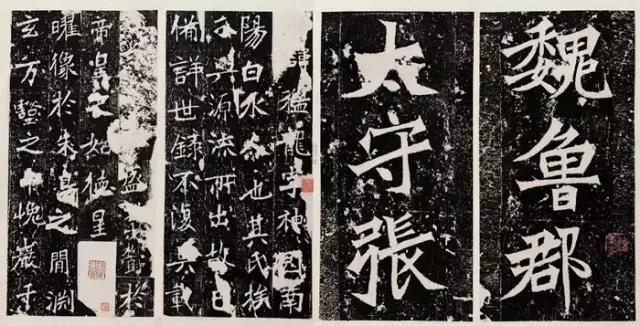 魏魯郡
太守張
諱猛龍字神囧南
陽白水人也其氏族
分興源流所出故已
備詳世錄不復具載
盛鬱於
帝皇之始德星
曜像於朱鳥之間淵
玄万壑之中巖千